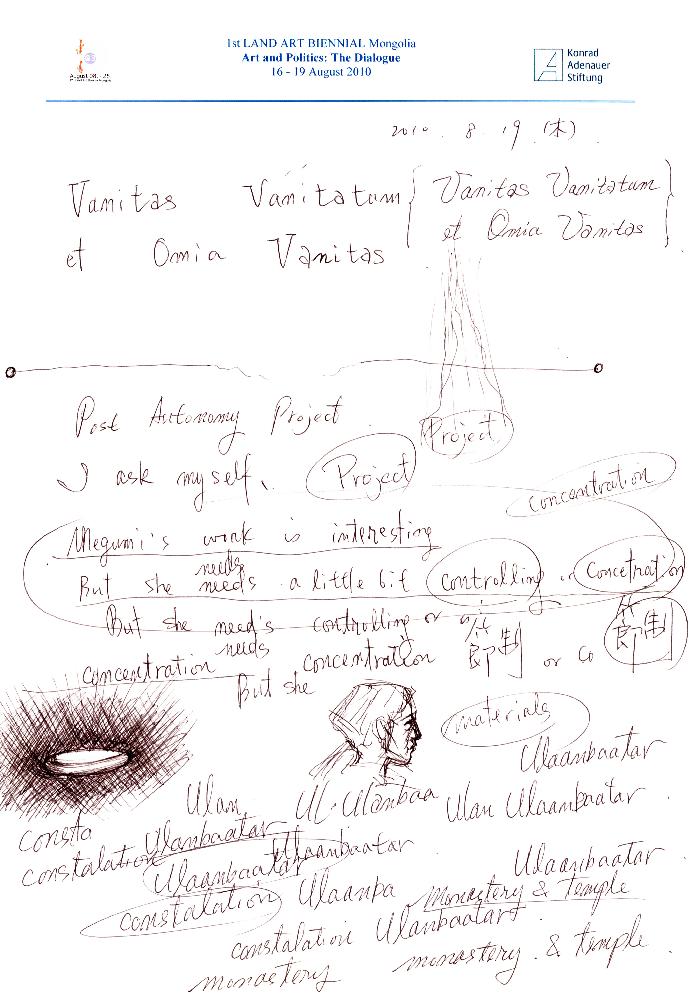 1st LAND ART BIENNIAL Mongolia
Art and Politics: The Dialogue
16 - 19 August 2010
Konrad
Adenauer
Stiftung
August 08. - 25
2010. 8. 19 (木)
Vanitas Vanitatum
et Omia Vanitas
Vanitas Vanitatum
et Omia Vanitas
Post Autonomy Project
Project
I ask myself, Project
concentration
Megumi's work is interesting
needs
But she needs a little bit controlling or Concetration
But she need's controlling or 節制 or co 節制
needs
concentration concentration
But she
materials
Ulaanbaatar
Ulan Ul. Ulanbaa Ulan Ulaanbaatar
consta
constalation Ulanbaatar
Ulaanbaatar Ulaanbaatar Ulaanbaatar
constalation Ulaanba monastery & temple
constalation Ulanbaatar
monastery monastery & temple